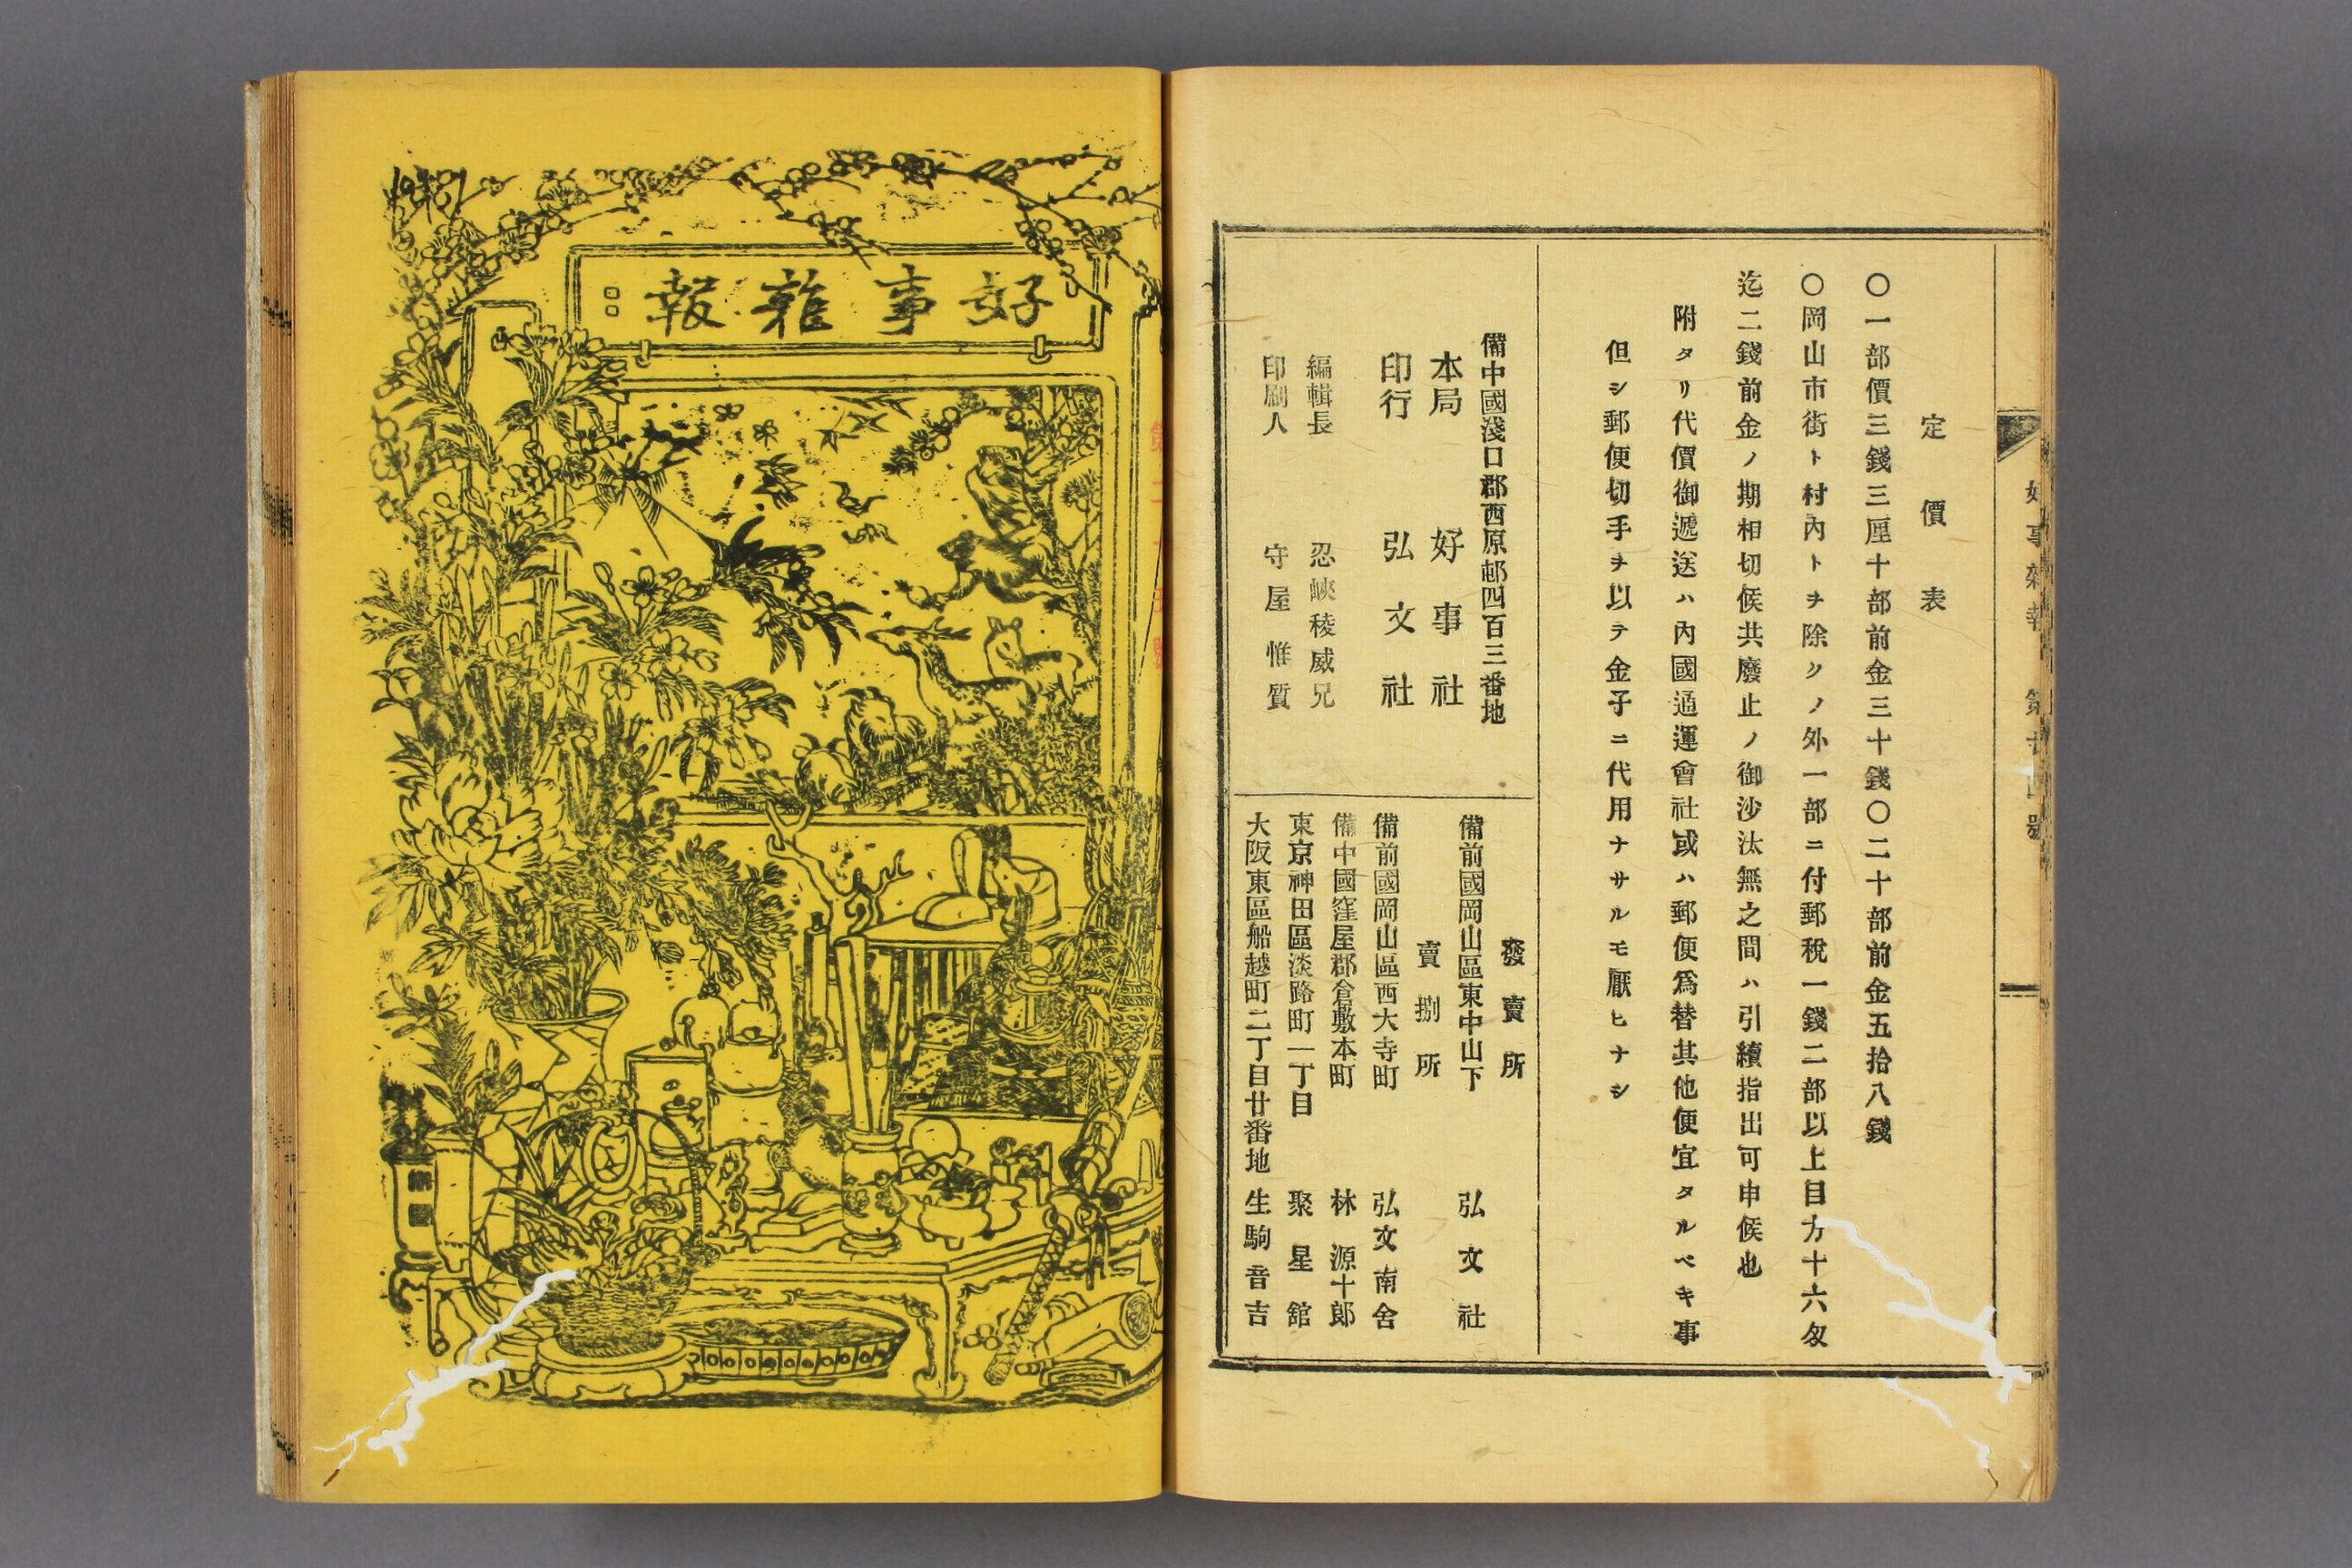 好事雜報
定價表
〇一部價三錢三厘十部前金三十錢〇二十部前金五拾八錢
〇岡山市街ト村內トヲ除クノ外一部ニ付郵稅一錢二部以上目方十六匁
迄二錢前金ノ期相切候共廢止ノ御沙汰無之間ハ引續指出可申候也
附タリ代價御遞送ハ內國通運會社或ハ郵便爲替其他便宜タルベキ事
但シ郵便切手ヲ以テ金子ニ代用ナサルモ厭ヒナシ
備中國淺口郡西原邨四百三番地
本局 好事社
印行 弘文社
編輯長 忍峽稜威兄
印刷人 守屋惟質
發賣所
備前國岡山區東中山下 弘文社
賣捌所
備前國岡山區西大寺町 弘文南舍
備中國窪屋郡倉敷本町 林源十郎
東京神田區淡路町一丁目 聚星館
大阪東區船越町二丁目廿番地 生駒音吉
好事雜報